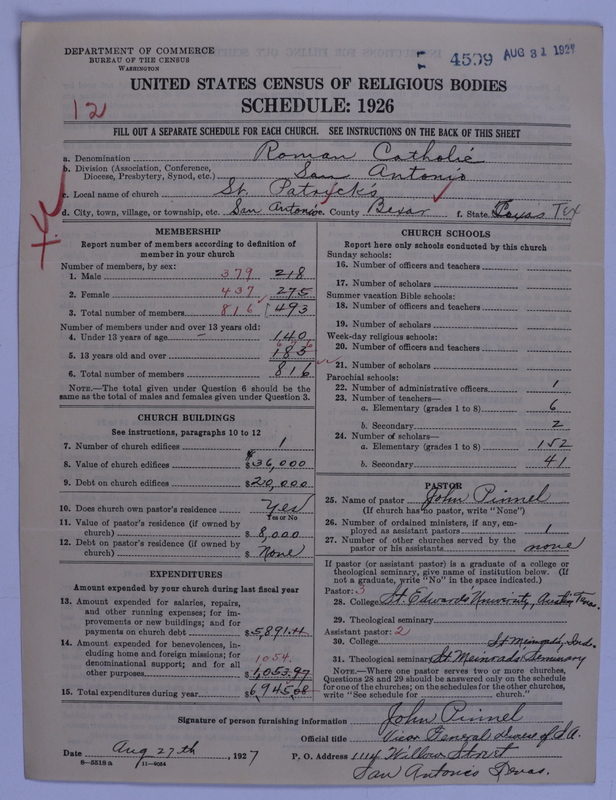 DEPARTMENT OF COMMERCE
BUREAU OF THE CENSUS
WASHINGTON
4509 AUG 31 1927
UNITED STATES CENSUS OF RELIGIOUS BODIES
SCHEDULE: 1926
12
FILL OUT A SEPARATE SCHEDULE FOR EACH CHURCH. SEE INSTRUCTIONS ON THE BACK OF THIS SHEET
a. Denomination Roman Catholic
b. Division (Association, Conference, Diocese, Presbytery, Synod, etc.) San Antonio
c. Local name of church St. Patryck's
d. City, town, village, or township, etc. San Antonio e. County Bexar f. State Texas Tex
MEMBERSHIP
Report number of members according to definition of
member in your church
Number of members by sex:
1. Male 379 218
2. Female 437 275
3. Total number of members 816 493
Number of members under and over 13 years old:
4. Under 13 years of age 140
5. 13 years old and over 183
6. Total number of members 816
NOTE.—The total given under Question 6 should be the
same as the total of males and females given under Question 3.
CHURCH BUILDINGS
See instructions, paragraphs 10 to 12
7. Number of church edifices 1
8. Value of church edifices $36,000
9. Debt on church edifices $20,000
10. Does church own pastor's residence? Yes
Yes or No
11. Value of pastor's residence (if owned by
church) $8,000
12. Debt on pastor's residence (if owned by
church) $None
EXPENDITURES
Amount expended by church during last fiscal year
13. Amount expended for salaries, repairs,
and other running expenses; for im-
provements or new buildings; and for
payments on church debt $5,891.11
14. Amount expended for benevolences, in-
cluding home and foreign missions; for
denominational support; and for all
other purposes 1054 $1,053.97
15. Total expenditures during year $6945.08
CHURCH SCHOOLS
Report here only schools conducted by this church
Sunday schools:
16. Number of officers and teachers
17. Number of scholars
Summer vacation Bible schools:
18. Number of officers and teachers
19. Number of scholars
Week-day religious schools:
20. Number of officers and teachers
21. Number of scholars
Parochial schools:
22. Number of administrative officers 1
23. Number of teachers—
a. Elementary (grades 1 to 8) 6
b. Secondary 2
24. Number of scholars—
a. Elementary (grades 1 to 8) 152
b. Secondary 41
PASTOR
25. Name of pastor John Pinnel
(If church has no pastor, write "None")
26. Number of ordained ministers, if any, em-
ployed as assistant pastors 1
27. Number of other churches served by the
pastor or his assistants none
If pastor (or assistant pastor) is a graduate of a college or
theological seminary, give name of institution below. (If
not a graduate, write "No" in the space indicated.)
Pastor: 3
28. College St. Edward's University, Austin Texas.
29. Theological seminary
Assistant pastor: 2
30. College St Meinrads, Ind.
31. Theological seminary St Meinrads Seminary
NOTE.—Where one pastor serves two or more churches,
Questions 28 and 29 should be answered only on the schedule
for one of the churches; on the schedules for the other churches,
write "See schedule for church."
Signature of person furnishing information John Pinnel
Official title Vicar General Dioces of S.A.
Date Aug 27th, 1927 P. O. Address 1114 Willow Street
8—5518a 11—9084 San Antonio Texas.